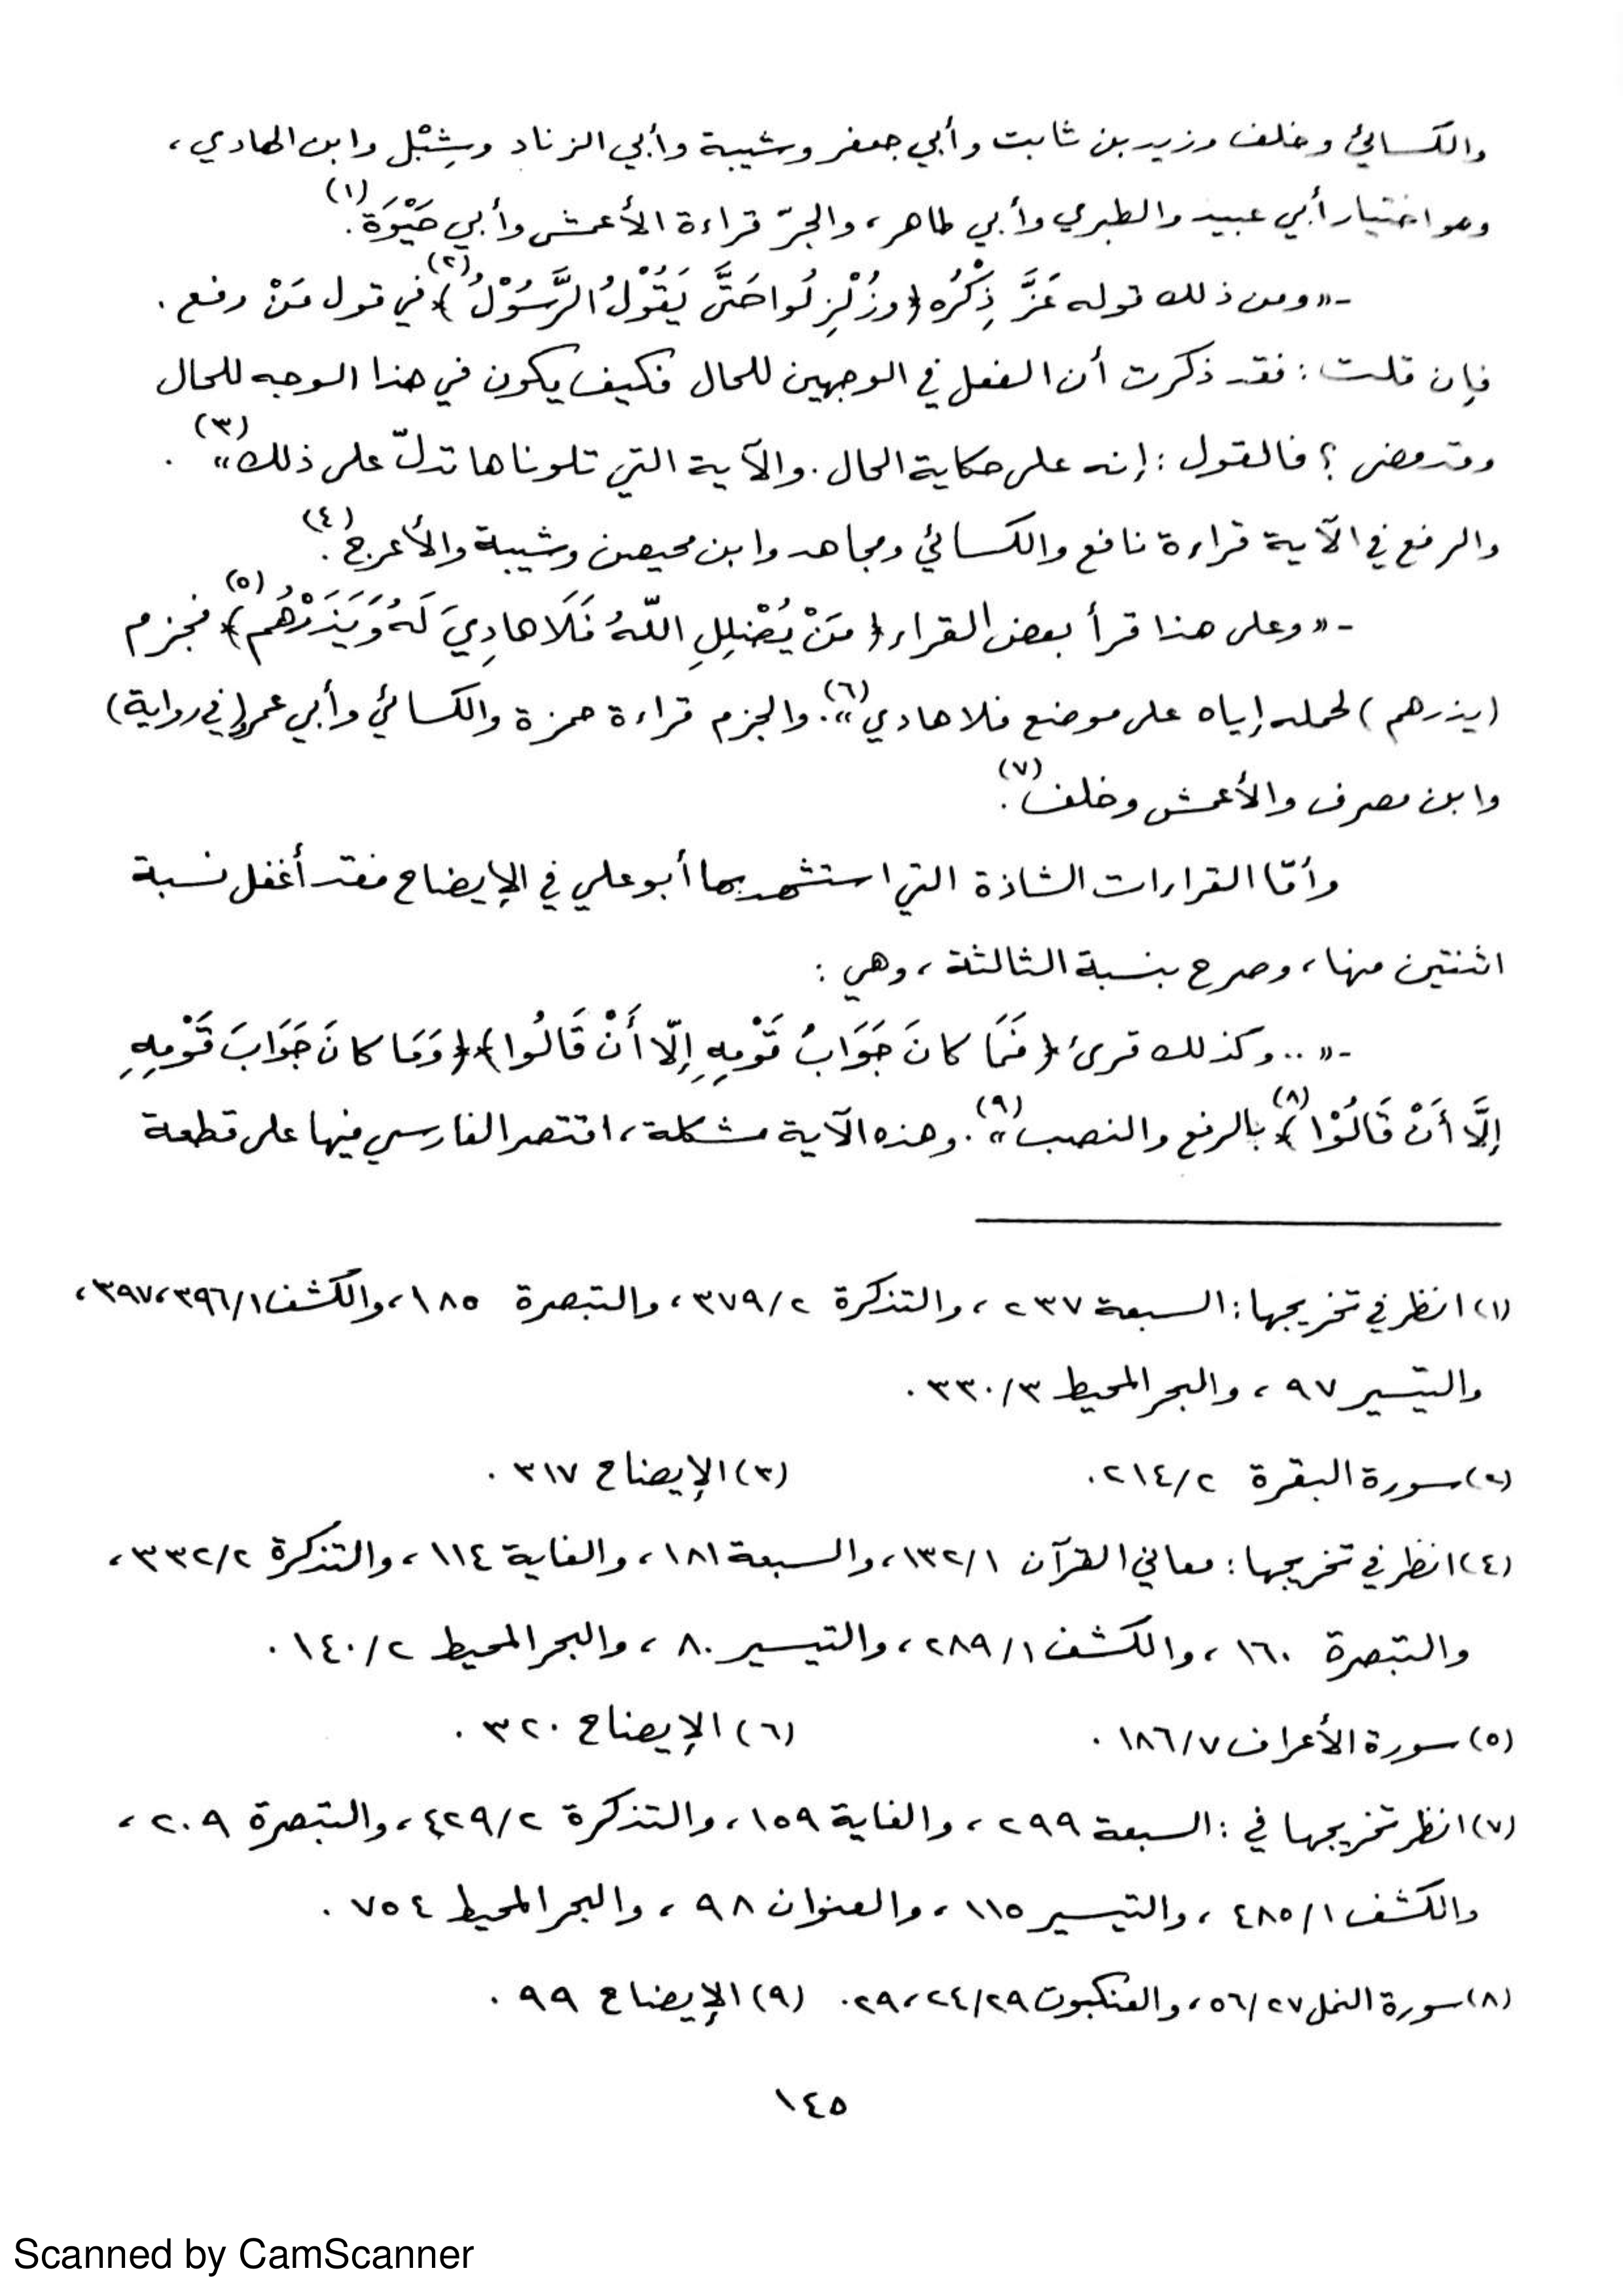 والكسائيّ وخلف وزيد بن ثابت وأبي جعفر وشيبة وأبي الزناد وشِبْل وابن الهادي،
وهو اختيار أبي عبيد والطبري وأبي طاهر، والجرّ قراءة الأعمش وأبي حَيْوَة(١).
-«ومن ذلك قوله عَزَّ ذِكْرُه ﴿وزُلْزِلُوا حَتَّى يَقُوْلُ الرَّسُوْلُ﴾(٢) في قول مَنْ رفع.
فإن قلت: فقد ذكرت أن الفعل في الوجهين للحال فكيف يكون في هذا الوجه للحال
وقد مضى؟ فالقول: إنه على حكاية الحال. والآية التي تلوناها تدلّ على ذلك»(٣).
والرفع في الآية قراءة نافع والكسائي ومجاهد وابن محيصن وشيبة والأعرج(٤).
-«وعلى هذا قرأ بعض القراء ﴿مَنْ يُضْلِلِ اللّهُ فَلَا هادِيَ لَهُ وَيَذَرْهُم﴾(٥) فجزم
(يذرهم) لحمله إياه على موضع فلا هادي»(٦). والجزم قراءة حمزة والكسائي وأبي عمرو(في رواية)
وابن مصرف والأعمش وخلف(٧).
وأمّا القراءات الشاذة التي استشهد بها أبو علي في الإيضاح فقد أغفل نسبة
اثنتين منها، وصرح بنسبة الثالثة، وهي:
-«.. وكذلك قرئ ﴿فَمَا كانَ جَوَابُ قَوْمِهِ إِلّا أَنْ قَالُوا﴾ ﴿وَمَا كانَ جَوَابَ قَوْمِهِ
إِلَّا أَنْ قَالُوْا﴾(٨) بالرفع والنصب»(٩). وهذه الآية مشكلة، اقتصر الفارسي فيها على قطعة
(١) انظر في تخريجها: السبعة ٢٣٧، والتذكرة ٣٧٩/٢، والتبصرة ١٨٥، والكشف ٣٩٦/١،٣٩٧،
والتيسير ٩٧، والبحر المحيط ٣٣٠/٣.
(٢) سورة البقرة ٢١٤/٢. (٣) الإيضاح ٣١٧.
(٤) انظر في تخريجها: معاني القرآن ١٣٢/١، والسبعة ١٨١، والغاية ١١٤، والتذكرة ٣٣٢/٢،
والتبصرة ١٦٠، والكشف ٢٨٩/١، والتيسير ٨٠، والبحر المحيط ١٤٠/٢.
(٥) سورة الأعراف ١٨٦/٧. (٦) الإيضاح ٣٢٠.
(٧) انظر تخريجها في: السبعة ٢٩٩، والغاية ١٥٩، والتذكرة ٤٢٩/٢، والتبصرة ٢٠٩،
والكشف ٤٨٥/١، والتيسير ١١٥، والعنوان ٩٨، والبحر المحيط ٧٥٤.
(٨) سورة النمل ٥٦/٢٧، والعنكبوت ٢٤/٢٩،٢٩. (٩) الإيضاح ٩٩.
١٤٥
Scanned by CamScanner